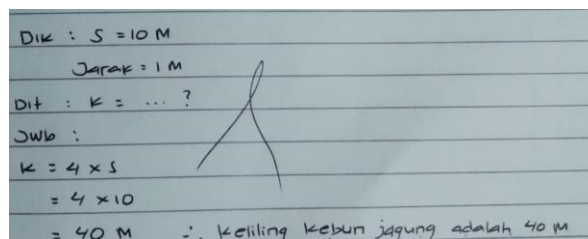 Dik : S = 10 M
Jarak = 1 M
Dit : K = ... ?
Jwb :
K = 4 x S
= 4 x 10
= 40 M ∴ Keliling Kebun jagung adalah 40 M